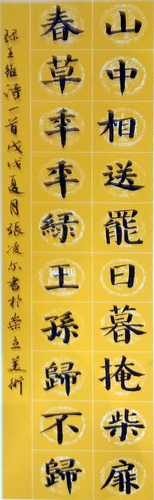 山中相送罷日暮掩柴扉
春草年年緑王孫歸不歸
録王維詩一首戊戌夏月張凌尔書於崇立美術